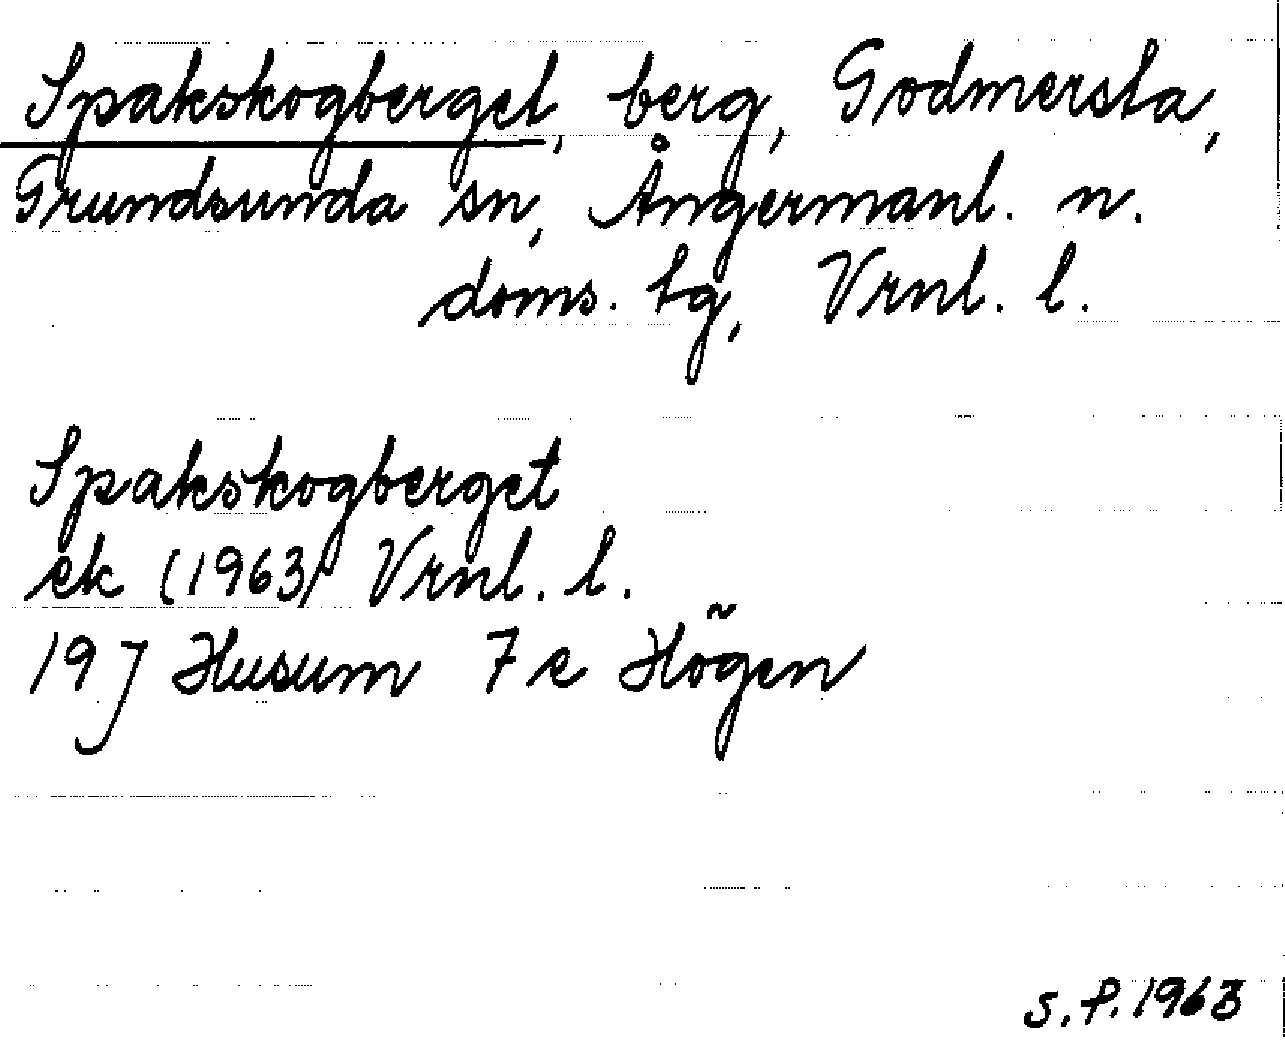 Spakskogberget, berg, Godmersta,
Grundsunda sn, Ångermanl. n.
doms. tg, Vrnl. l.
Spakskogberget
ek (1963) Vrnl. l.
19 J Husum 7 e Högen
S.P. 1963